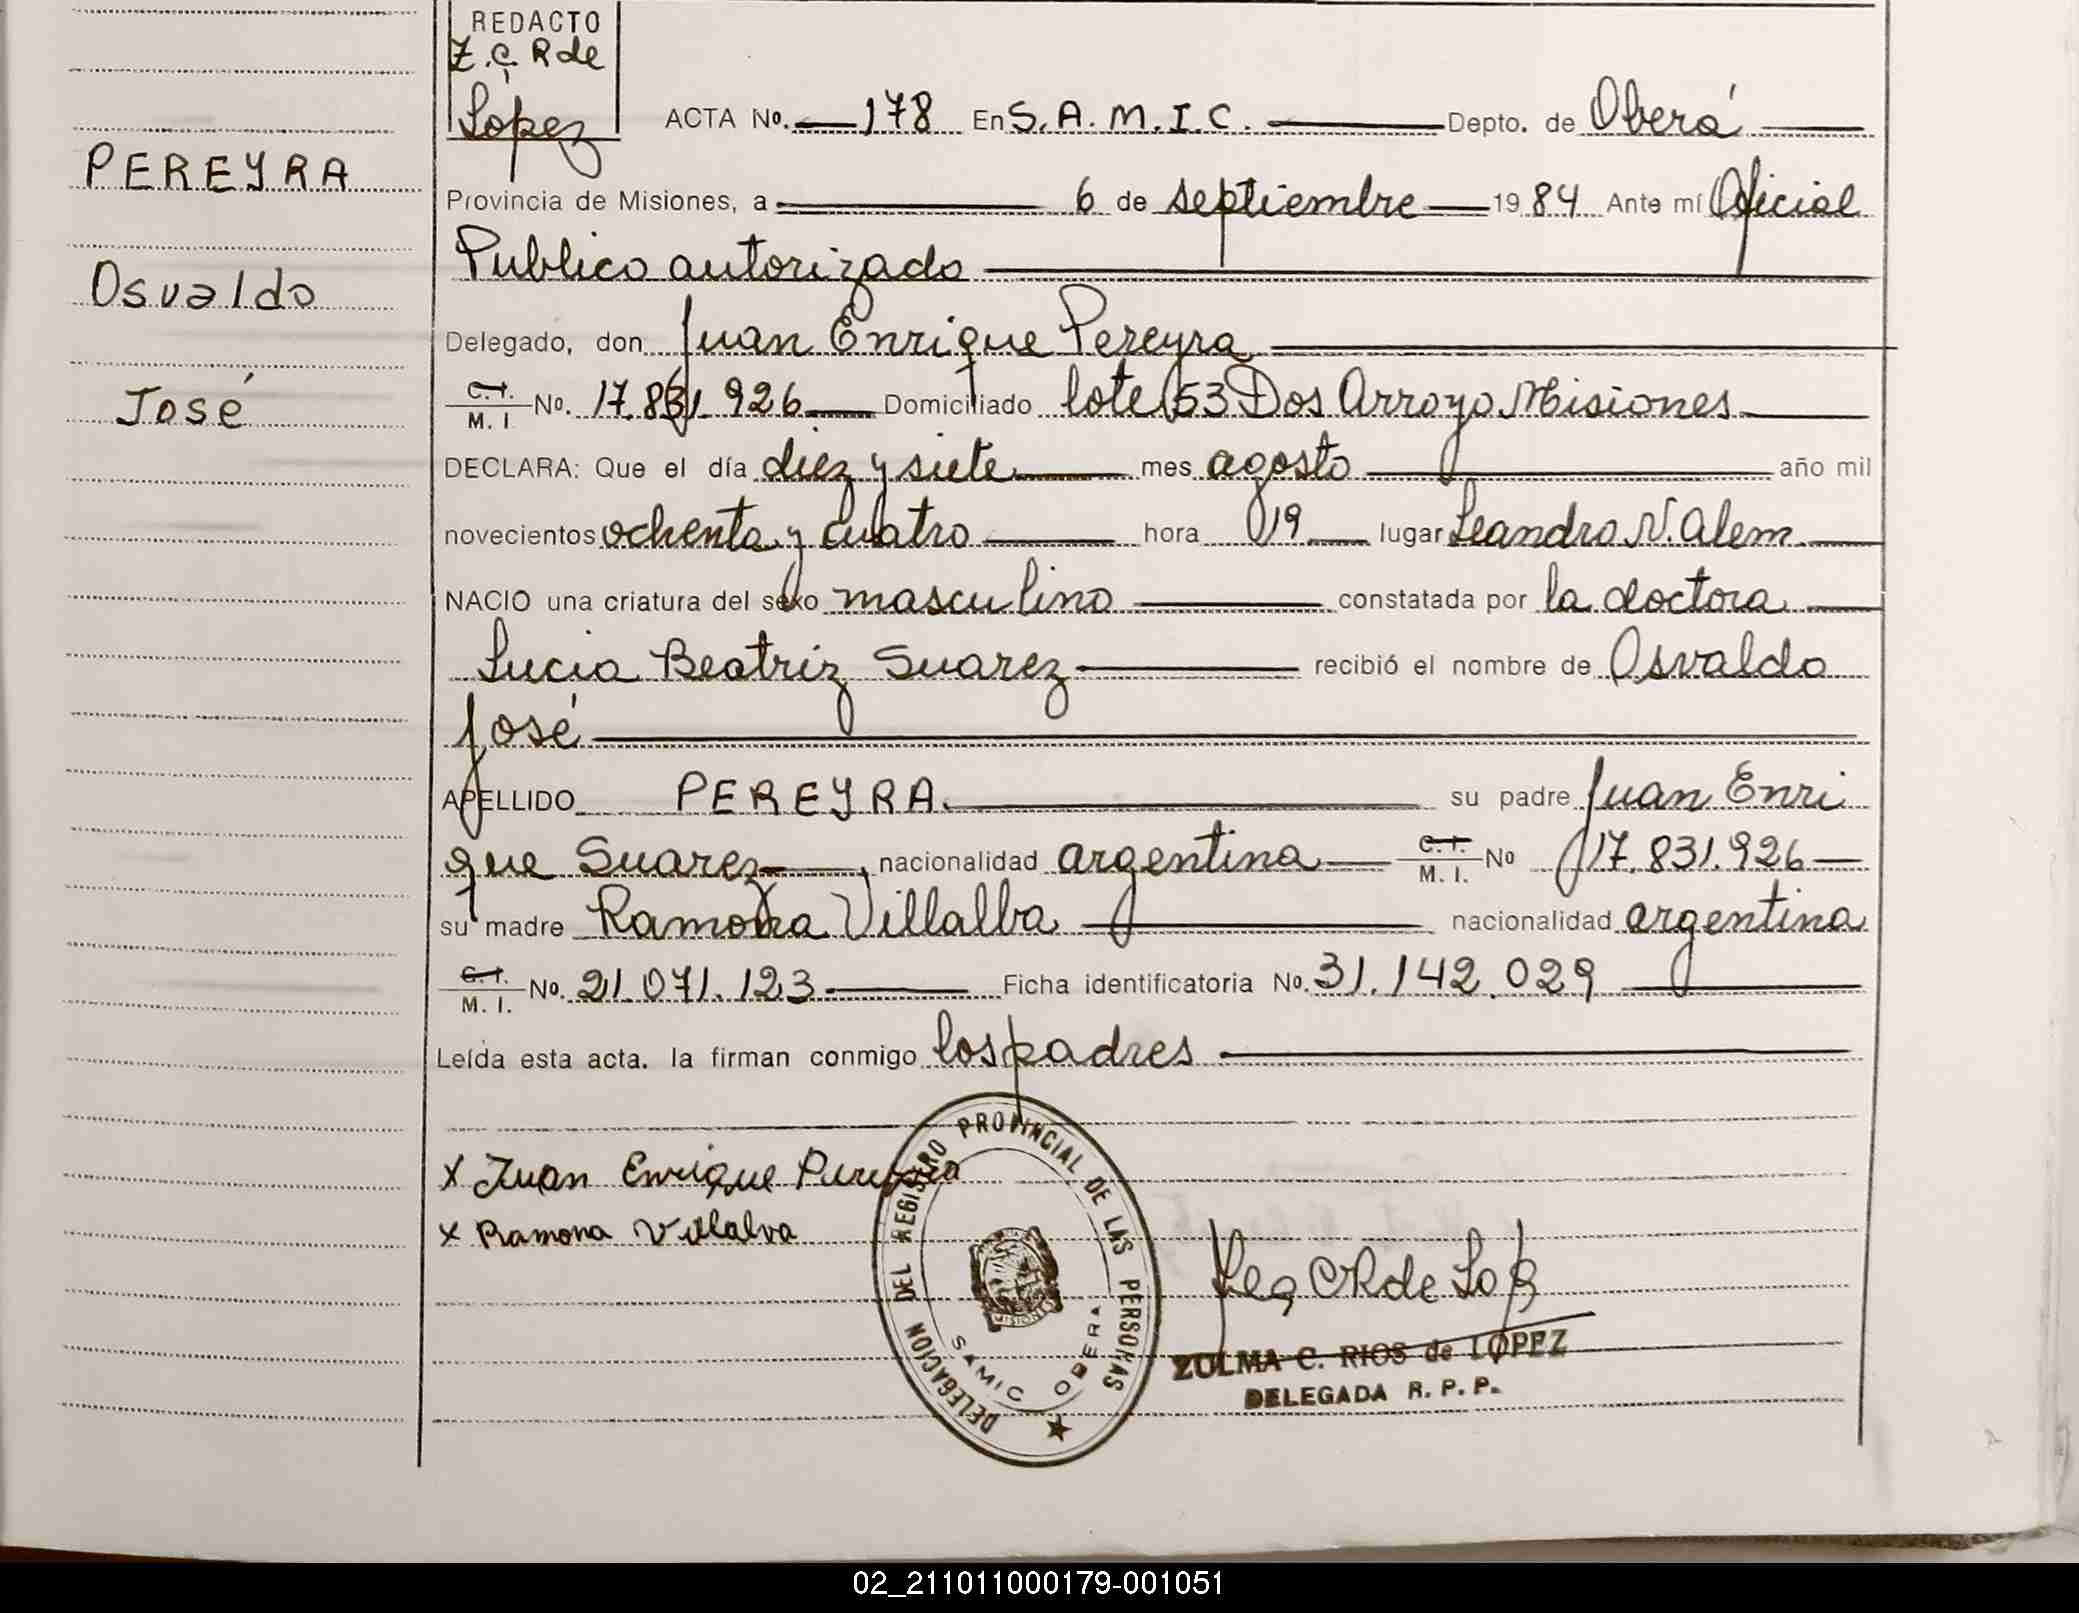 REDACTO
Z. C. R de
López
ACTA No. 178 En S. A. M. I. C. Depto. de Oberá
PEREYRA
Provincia de Misiones, a 6 de septiembre 1984 Ante mí Oficial
Publico autorizado
Osvaldo
Delegado, don Juan Enrique Pereyra
José
C. I.
M. I. No. 17.831.926 Domiciliado lote 153 Dos Arroyo Misiones
DECLARA: Que el día diez y siete mes agosto año mil
novecientos ochenta y cuatro hora 19 lugar Leandro N. Alem
NACIO una criatura del sexo masculino constatada por la doctora
Lucia Beatriz Suarez recibió el nombre de Osvaldo
José
APELLIDO PEREYRA su padre Juan Enri
que Suarez, nacionalidad argentina C. I. M. I. No 17.831.926
su madre Ramona Villalba nacionalidad argentina
C. I.
M. I. No. 21.071.123 Ficha identificatoria No. 31.142.029
Leída esta acta. la firman conmigo los padres
x Juan Enrique Pereyra
x Ramona Villalva
DELEGACION DEL REGISTRO PROVINCIAL DE LAS PERSONAS
MISIONES
SAMIC OBERA
ZULMA C. RIOS de LOPEZ
DELEGADA R. P. P.
02_211011000179-001051